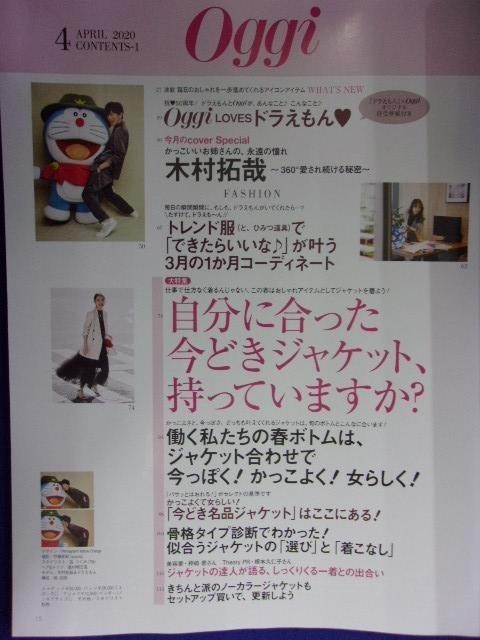 4 APRIL 2020
CONTENTS-1
Oggi
連載 毎日のおしゃれを一歩進めてくれるアイコンアイテム WHAT'S NEW
祝♥50周年! ドラえもんとOggiが、あんなこと♪ こんなこと♪
Oggi LOVES ドラえもん♥
『ドラえもん』×Oggi
オリジナル
付箋付き
今月のcover Special
かっこいいお姉さんの、永遠の憧れ
木村拓哉 〜360°愛され続ける秘密〜
FASHION
50
62
毎日の瞬間瞬間に、もしも、ドラえもんがいてくれたら…?
\たすけて、ドラえも〜ん!/
トレンド服(と、ひみつ道具)で
「できたらいいな♪」が叶う
3月の1か月コーディネート
大特集
仕事で仕方なく着るんじゃない、この春はおしゃれアイテムとしてジャケットを着よう!
74
自分に合った
今どきジャケット、
持っていますか?
74
かっこよさと、今っぽさ、どっちも叶えてくれるジャケットは、旬のボトムとこんなに合います!
働く私たちの春ボトムは、
ジャケット合わせで
今っぽく! かっこよく! 女らしく!
かっこよくて女らしい!
「今どき名品ジャケット」はここにある!
骨格タイプ診断でわかった!
似合うジャケットの「選び」と「着こなし」
ジャケットの達人が語る、しっくりくる一着との出会い
きちんと派のノーカラージャケットも
セットアップ買いで、更新しよう
15